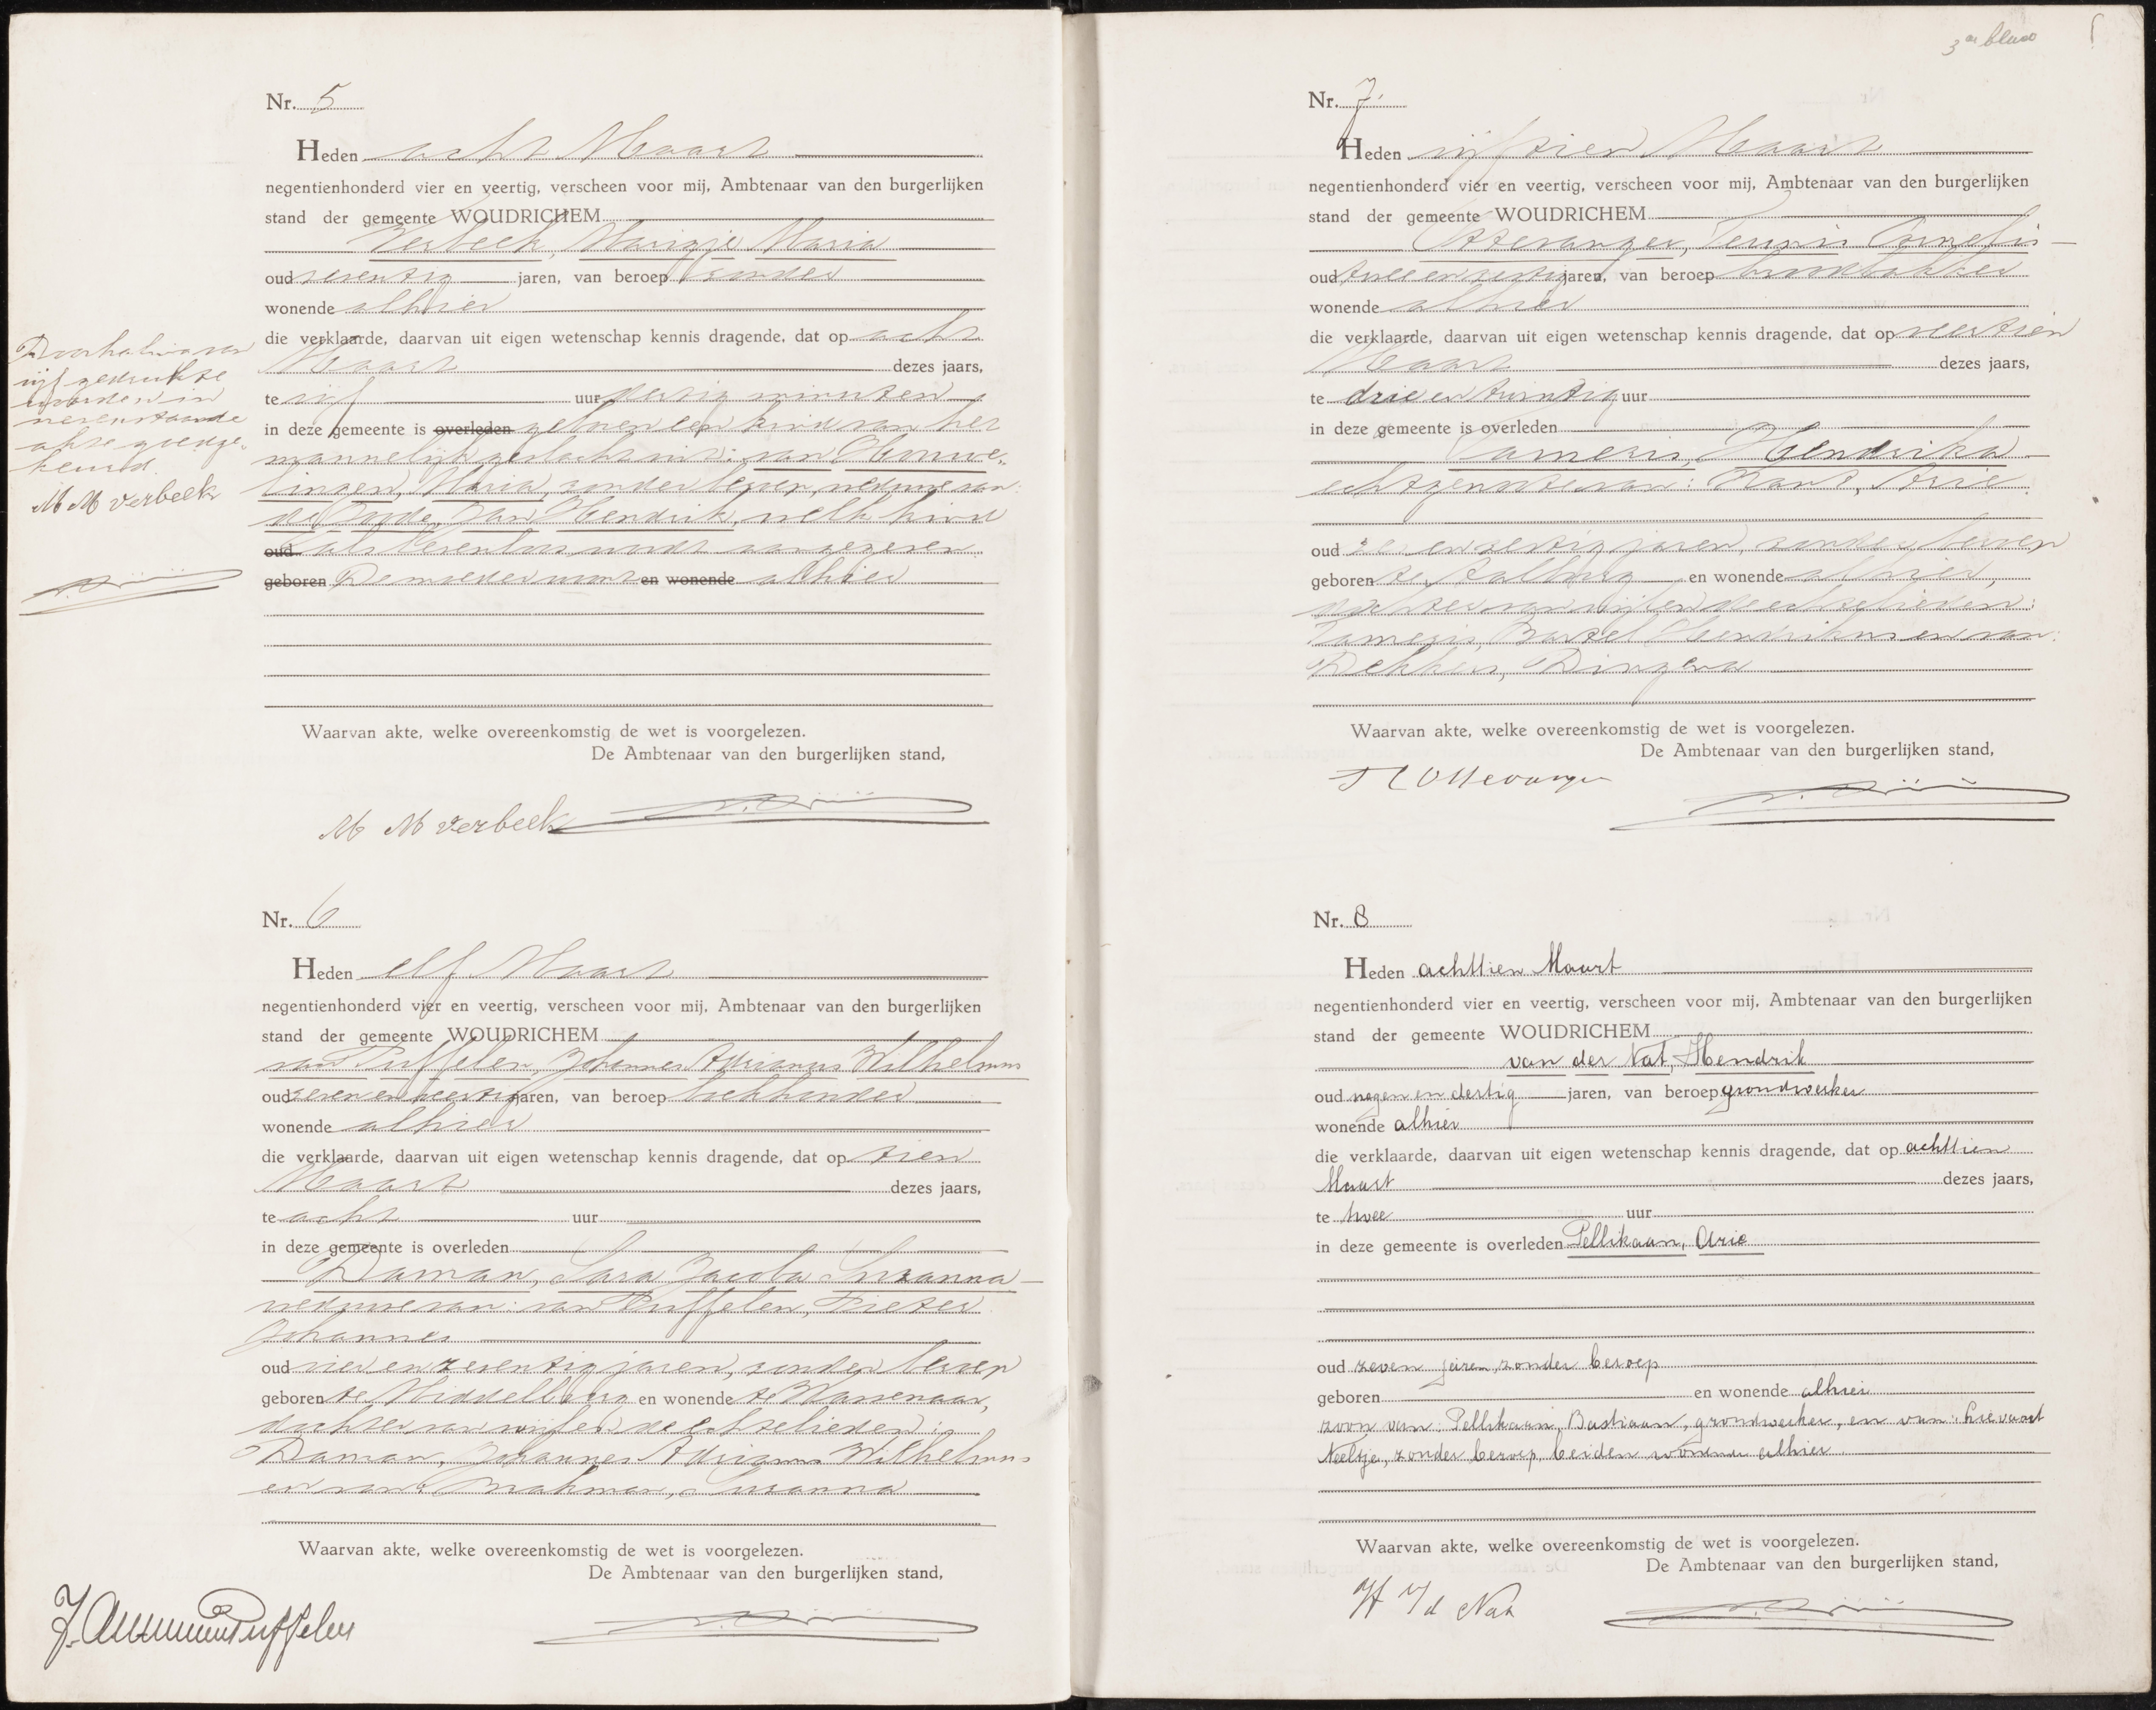 Nr. 5
Heden acht Maart
negentienhonderd vier en veertig, verscheen voor mij, Ambtenaar van den burgerlijken
stand der gemeente WOUDRICHEM
Verbeek, Marigje Maria
oud zeventig jaren, van beroep zonder
wonende alhier
die verklaarde, daarvan uit eigen wetenschap kennis dragende, dat op acht
Maart dezes jaars,
te vijf uur dertig minuten
in deze gemeente is overleden geboren een kind van het
mannelijk geslacht uit: van Herwe-
lingen, Maria, zonder beroep, weduwe van:
Jan Hendrik, welk kind
oud als levenloos wordt aangegeven.
geboren De moeder woont en wonende alhier
Doorhaling van
vijf gedrukte
woorden in
nevenstaande
akte goedge-
keurd.
M M Verbeek
Waarvan akte, welke overeenkomstig de wet is voorgelezen.
De Ambtenaar van den burgerlijken stand,
M M Verbeek
Nr. 6
Heden elf Maart
negentienhonderd vier en veertig, verscheen voor mij, Ambtenaar van den burgerlijken
stand der gemeente WOUDRICHEM
van Puffelen, Johannes Adrianus Wilhelmus
oud zeven en veertig jaren, van beroep boekhouder
wonende alhier
die verklaarde, daarvan uit eigen wetenschap kennis dragende, dat op tien
Maart dezes jaars,
te acht uur
in deze gemeente is overleden
Daman, Sara Jacoba Suzanna
weduwe van: van Puffelen, Pieter
Johannes
oud vier en zeventig jaren, zonder beroep
geboren te Middelburg en wonende te Wassenaar,
dochter van wijlen de echtelieden:
Daman, Johannes Adrianus Wilhelmus
en van: Brakman, Suzanna
Waarvan akte, welke overeenkomstig de wet is voorgelezen.
De Ambtenaar van den burgerlijken stand,
3de blad
Nr. 7.
Heden vijftien Maart
negentienhonderd vier en veertig, verscheen voor mij, Ambtenaar van den burgerlijken
stand der gemeente WOUDRICHEM
Ottevanger, Teunis Cornelis
oud twee en zestig jaren, van beroep broodbakker
wonende alhier
die verklaarde, daarvan uit eigen wetenschap kennis dragende, dat op veertien
Maart dezes jaars,
te drie en twintig uur
in deze gemeente is overleden
Tameris, Hendrika
echtgenoote van: Kant, Arie
oud en zestig jaren, zonder beroep
geboren te Aalburg en wonende alhier,
dochter van wijlen de echtelieden:
Tameris, Bastel Hendrikus en van:
Dekker, Dingena
Waarvan akte, welke overeenkomstig de wet is voorgelezen.
De Ambtenaar van den burgerlijken stand,
T C Ottevanger
Nr. 8
Heden achttien Maart
negentienhonderd vier en veertig, verscheen voor mij, Ambtenaar van den burgerlijken
stand der gemeente WOUDRICHEM
van der Nat, Hendrik
oud negen en dertig jaren, van beroep grondwerker
wonende alhier
die verklaarde, daarvan uit eigen wetenschap kennis dragende, dat op achttien
Maart dezes jaars,
te twee uur
in deze gemeente is overleden Pellikaan, Arie
oud zeven jaren, zonder beroep
geboren en wonende alhier
zoon van: Pellikaan, Bastiaan, grondwerker, en van:
Neeltje, zonder beroep, beiden wonende alhier
Waarvan akte, welke overeenkomstig de wet is voorgelezen.
De Ambtenaar van den burgerlijken stand,
H v/d Nat